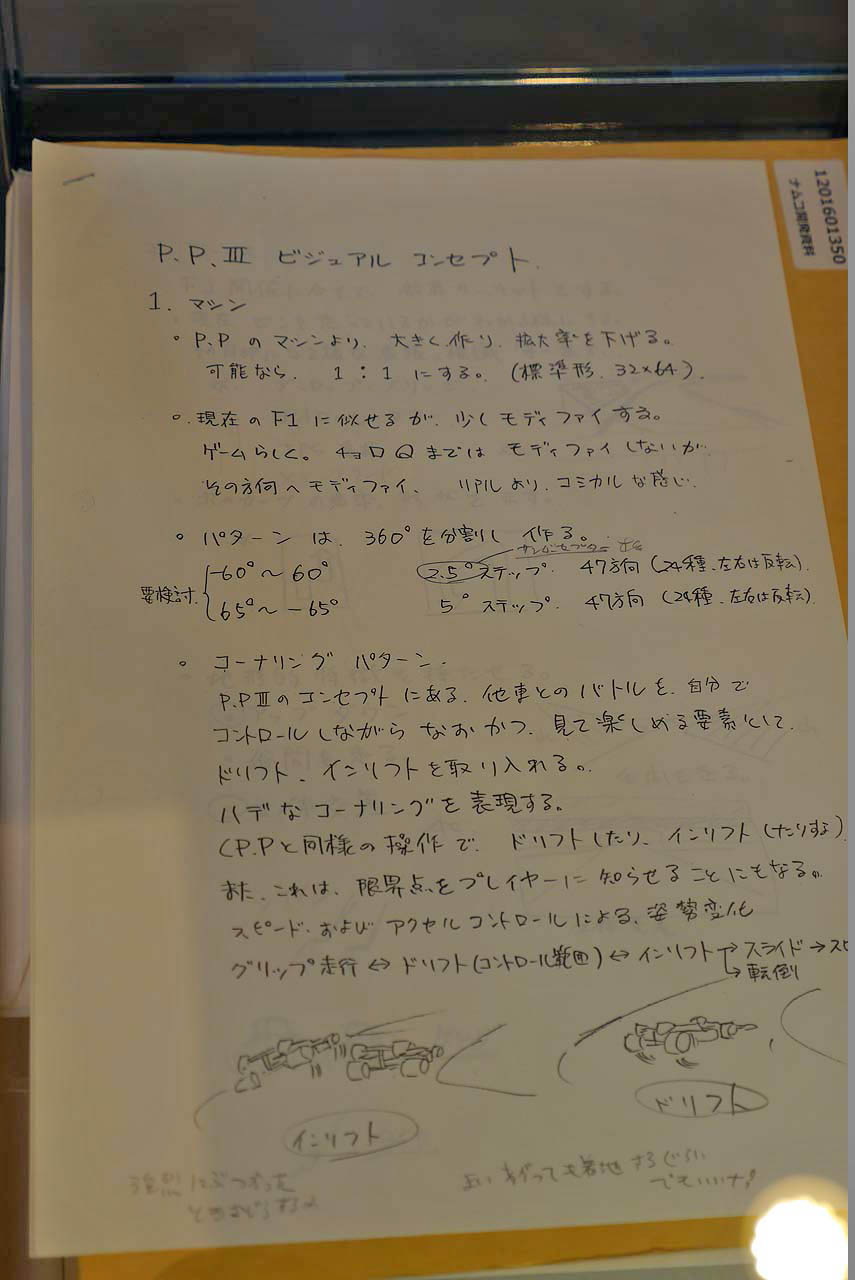 1201601350
ナムコ開発資料
P.P.III ビジュアル コンセプト.
1. マシン
。P.P のマシンより、大きく作り、拡大率を下げる。
可能なら、1:1にする。(標準形、32×64).
。現在のF1に似せるが、少しモディファイする。
ゲームらしく。チョロQまでは モディファイしないが
その方向へモディファイ、リアルより、コミカルな感じ.
。パターンは、360°を分割し 作る。
要検討.
-60°～60° 2.5°ステップ. 47方向(24種、左右は反転).
65°～-65° 5°ステップ. 47方向(24種、左右は反転).
。コーナリング パターン.
P.P IIIのコンセプトにある、他車とのバトルを、自分で
コントロールしながら なおかつ、見て楽しめる要素として.
ドリフト、インリフトを取り入れる。
ハデなコーナリングを表現する。
(P.Pと同様の操作で、ドリフトしたり、インリフトしたりする)
また、これは、限界点をプレイヤーに知らせることにもなる。
スピード、および アクセルコントロールによる、姿勢変化
グリップ走行 ⇔ ドリフト(コントロール範囲) ⇔ インリフト → スライド → スピ
→ 転倒
インリフト
ドリフト